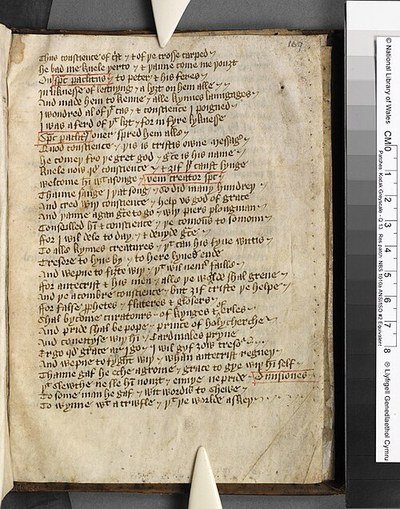 Thus conscience of cͥst ⁊ of þe crosse carped
he bad me knele þerto ⁊ þanne come me þouȝt
On spͨ paclitus to peter ⁊ his feres
In liknesse of liȝtnyng a lyȝt on hem alle
And made hem to kenne ⁊ alle kynnes langages
I wondred al of þͭ cas ⁊ conscience I poigned
I was aferd of þͭ liȝt for in fyre lyknesse
Spͨ paclitꝰ ouer spred hem alle
Quod conscience þis is cristis owne messageͬ
he comeþ fro þe gret god gͣce is his name
Knele now qd conscience ⁊ ȝif þͧ canst synge
welcome hī wͭ songe veni creator spc
Thanne sange I þat song so did many hundred
And cryd wiþ conscience help vs god of grace
And þanne gan gͣce to go wiþ piers plougman
Consailled hī ⁊ conscience þe comons to somoun
For I wil dele to day ⁊ deuyde gͣce
To alle kynnes creatures þͭ can his fyue wittis
Tresore to lyue by to here lyues ende
And wepne to fiȝte wiþ þͭ wil neuͬ faille
For antecrist ⁊ his men alle þe world shal greue
And þe acombre conscience but ȝif crist þe helpe
For false pͬphetes flateres ⁊ glosers
Shul bycome curatours of kynges ⁊ of erles
And pride shal be pope prince of holy cherche
And couetyse wiþ hī cardinales pryue
Ergo qd grace ar I go I wil gyf ȝow tresoͬ
And wepne to fyght wiþ whan antecrist regneþ
Thanne gaf he eche a grome grace to gye wiþ hī self
þͭ slewthe ne sle hī nouȝt enuye ne pride Diuisiones
To some man he gaf wit wordis to shewe
To wynne wͭ a trwþe þͭ þe worlde askeþ
169
© National Library of Wales
CM 0 1 2 3 4 5 6 7 8
© Llyfrgell Genedlaethol Cymru